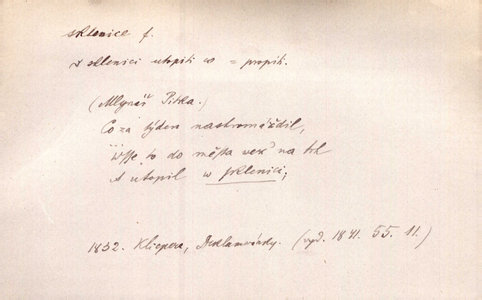 sklenice f.
v sklenici utopiti co = propíti.
(Mlynář Pitka.)
Co za týden nastromáždil,
Wsse to do města wez' na trh
A utopil w sklenici;
1832. Klicpera, Deklamovánky. (vyd. 1841. 55. 11.)